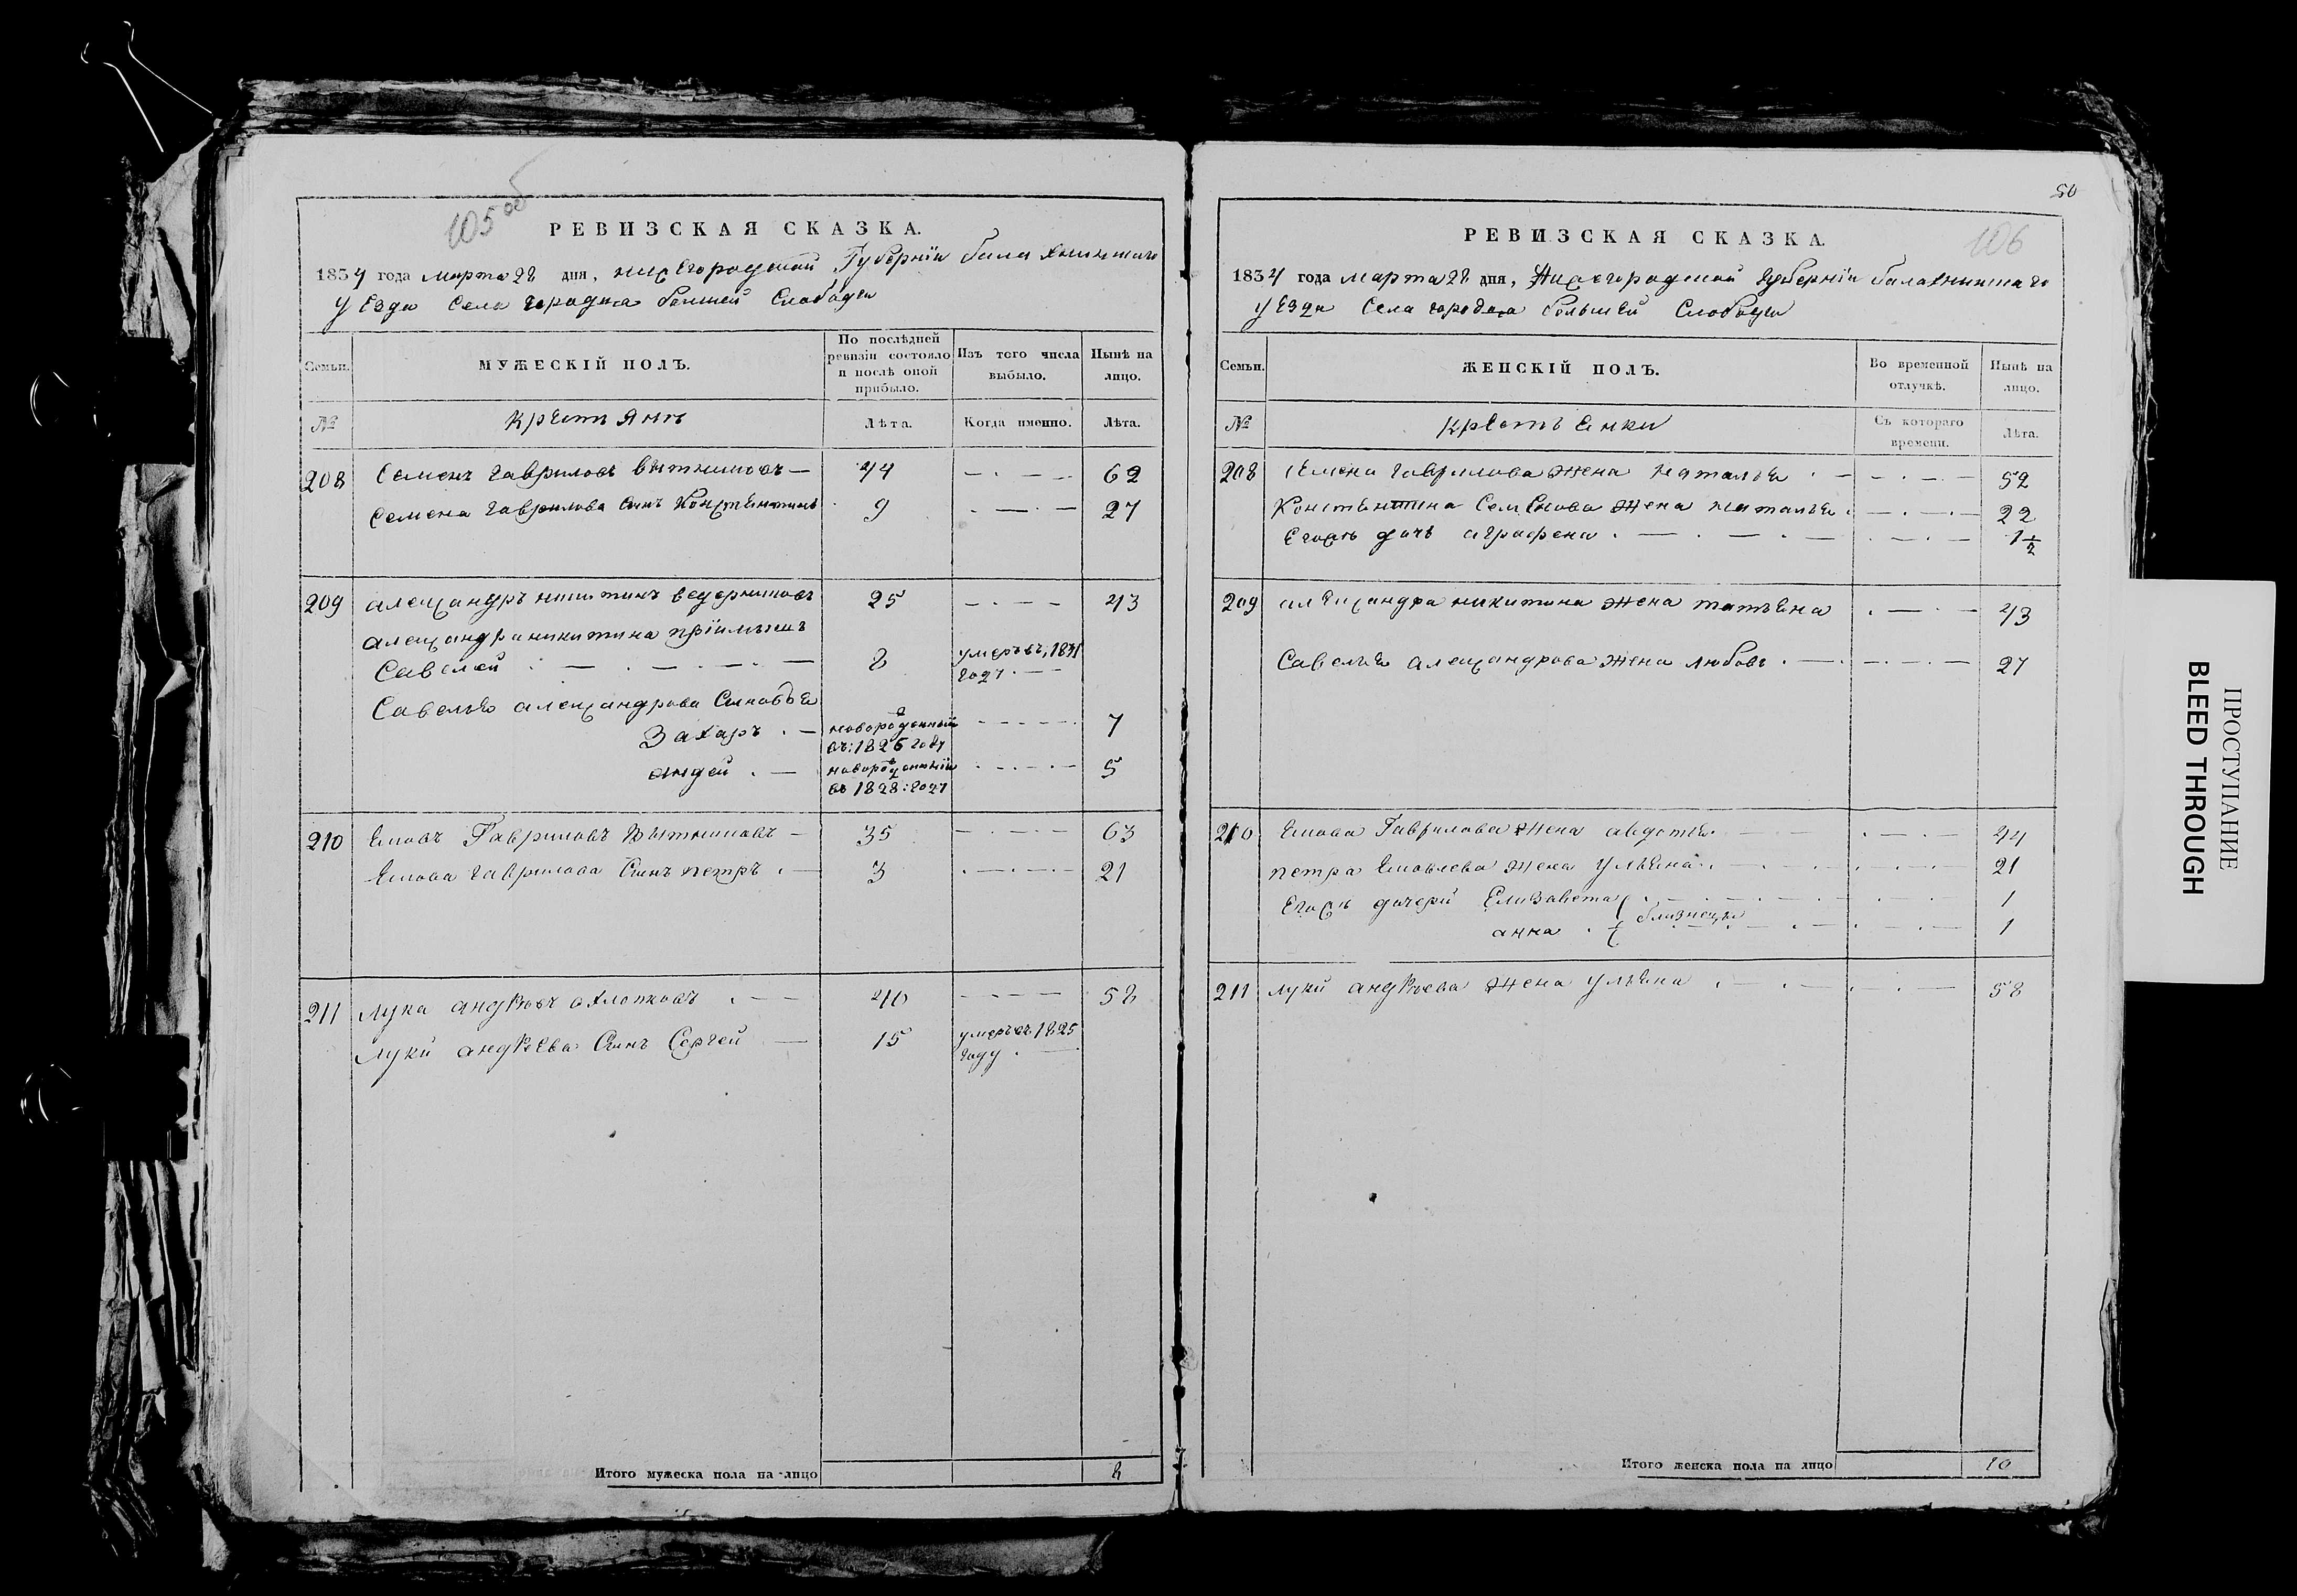 105 об
РЕВИЗСКАЯ СКАЗКА.
1834 года марта 28 дня, нижегородской Губернiи бала хнинскаго
уезда села городца болшей Слободы
Семьи.
МУЖЕСКІЙ ПОЛЪ.
По послѣдней ревизіи состояло и послѣ оной прибыло.
Изъ того числа выбыло.
Нынѣ на лицо.
№
крестьянъ
Лѣта.
Когда именно.
Лѣта.
208 Семенъ гавриловъ — 44 — . — — 62
Семена гаврилова сынъ Констентинъ 9 — . — 27
209 александръ никитинъ ведерниковъ 25 — . — — 43
александра никитина прiимышъ
Савелей . — . — . — . — 8 умеръ въ, 1831
году . —
Савелья александрова сыновья
Захаръ . — новорожденный — . — . — 7
въ: 1826 году
андей . — новорожденный . — . — . — 5
въ 1828: году
210 Яковъ Гавриловъ — 35 — . — . — 63
Якова гаврилова сынъ петръ . — 3 . — . — . — 21
211 лука андреевъ охлопковъ . — — 40 — . — . — 58
луки андреева сынъ Сергей — 15 умеръ въ 1825
году . —
Итого мужеска пола на-лицо 8
50
106
РЕВИЗСКАЯ СКАЗКА.
1834 года марта 28 дня, Нижегородской губернiи балахнинскаго
уезда Села городца большей Слободы
Семьи.
ЖЕНСКІЙ ПОЛЪ.
Во временной отлучкѣ.
Нынѣ на лицо.
№
крестьенки
Съ котораго времени.
Лѣта.
208 Семена гаврилова жена наталья . — — . — . — 52
Констентина Семенова жена наталья . — . — . — 22
Егожъ дочь аграфена . — . — . — . — . — 1½
209 александра никитина жена татьена . — . — 43
Савелья александрова жена любовь . — . — . — . — 27
210 Якова Гаврилова жена авдотья . — . — . — 44
петра Яковлева жена ульена . — . — . — 21
Егожъ дочери Елизавета . — . — . — 1
близнецы
анна . — . — . — 1
211 луки андреева жена ульена . — . — . — 58
Итого женска пола на лицо 10
ПРОСТУПАНИЕ
BLEED THROUGH